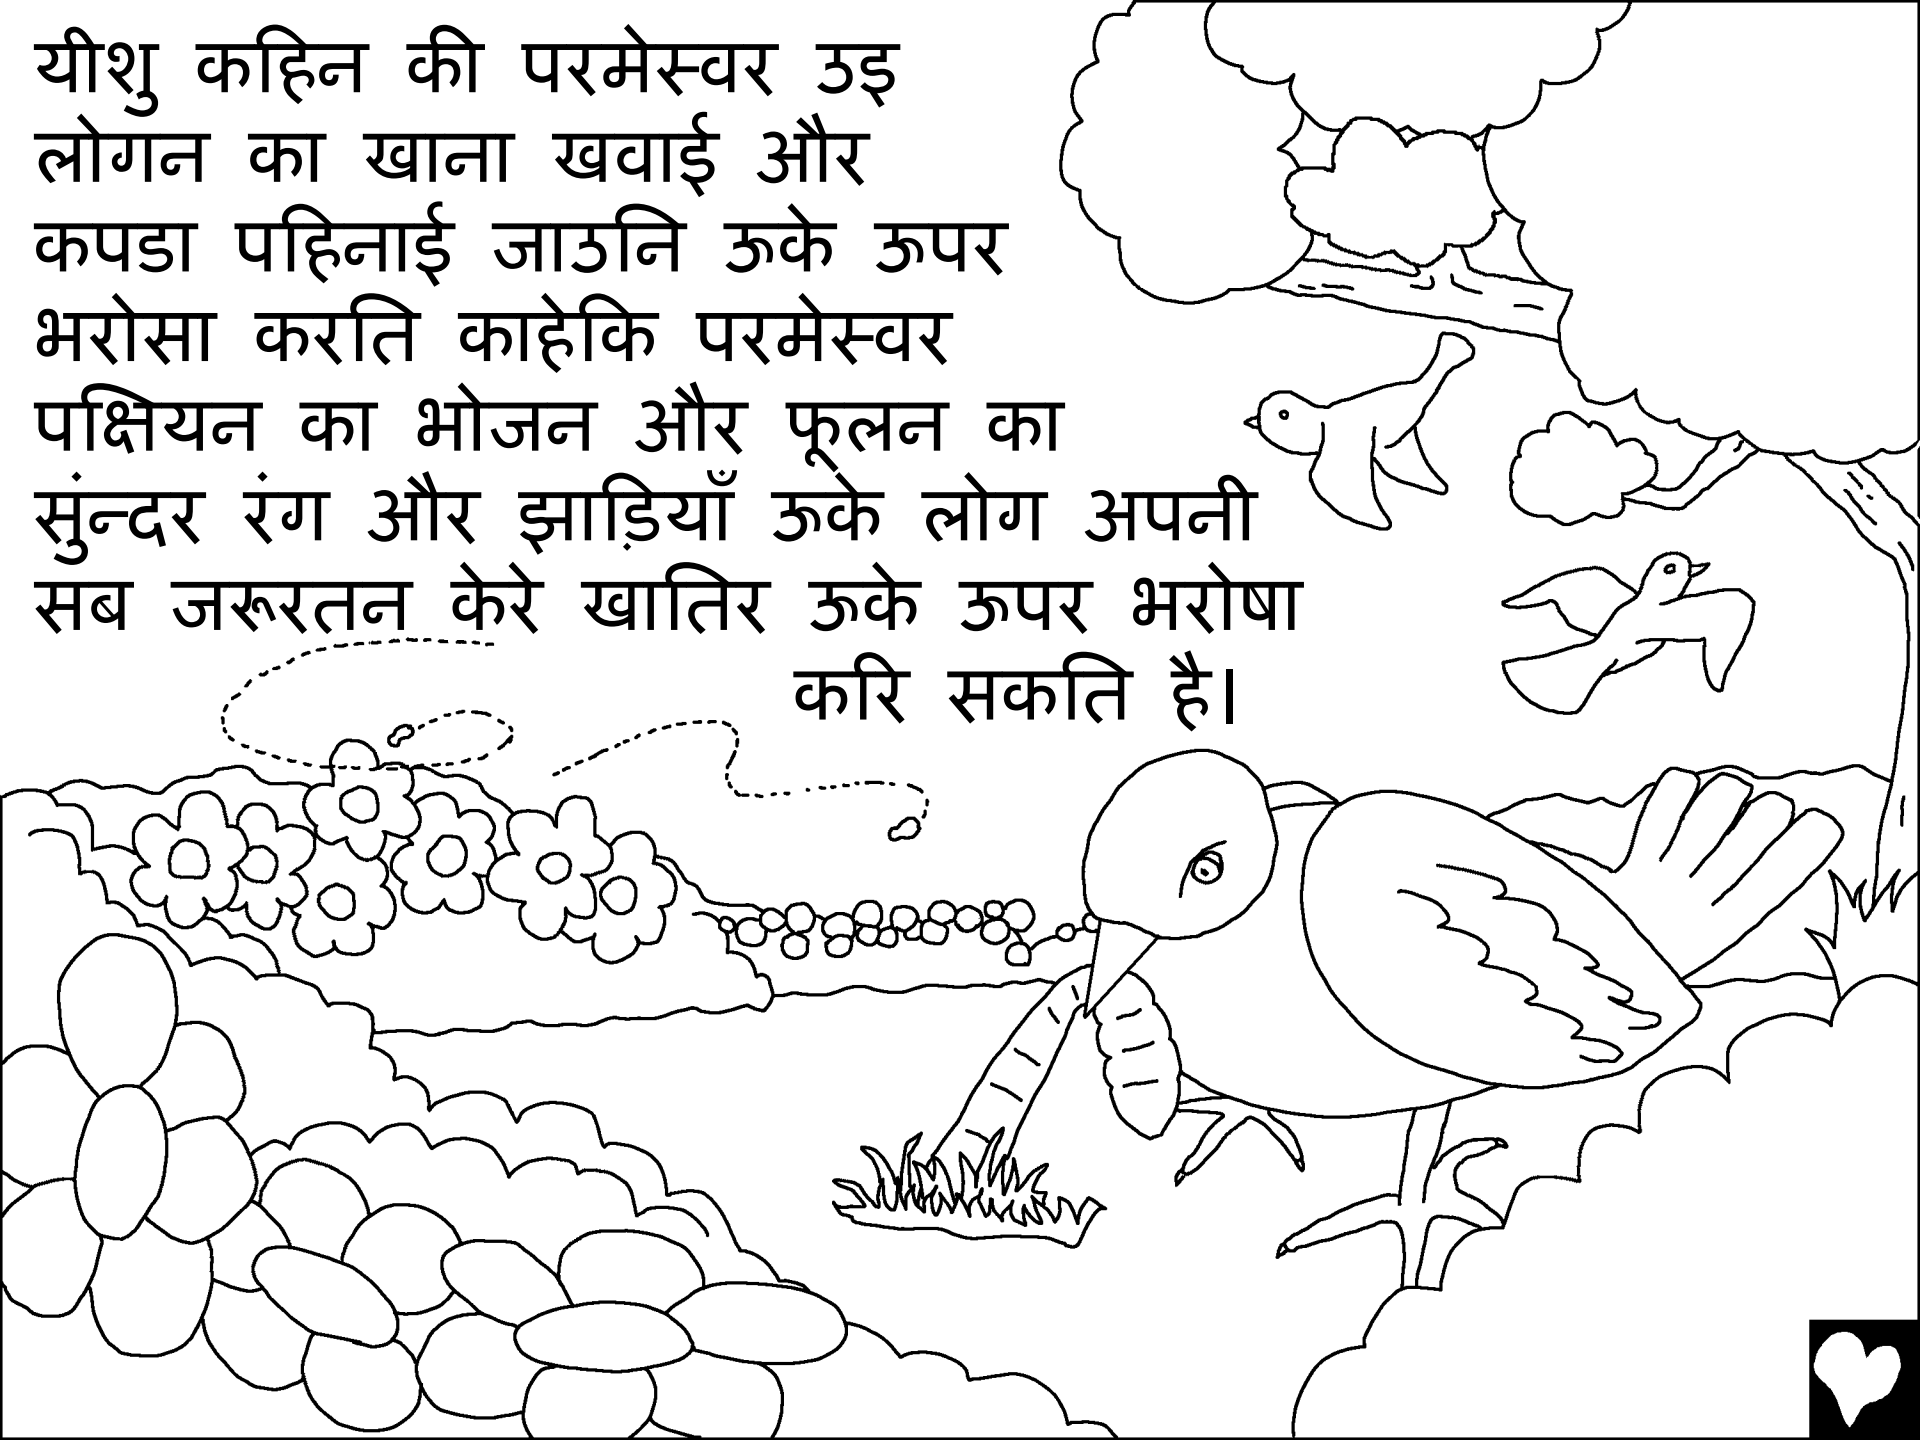 यीशु कहिन की परमेस्वर उइ
लोगन का खाना खवाई और
कपडा पहिनाई जाउनि ऊके ऊपर
भरोसा करति काहेकि परमेस्वर
पक्षियन का भोजन और फूलन का
सुंन्दर रंग और झाड़ियाँ ऊके लोग अपनी
सब जरूरतन केरे खातिर ऊके ऊपर भरोषा
करि सकति है।